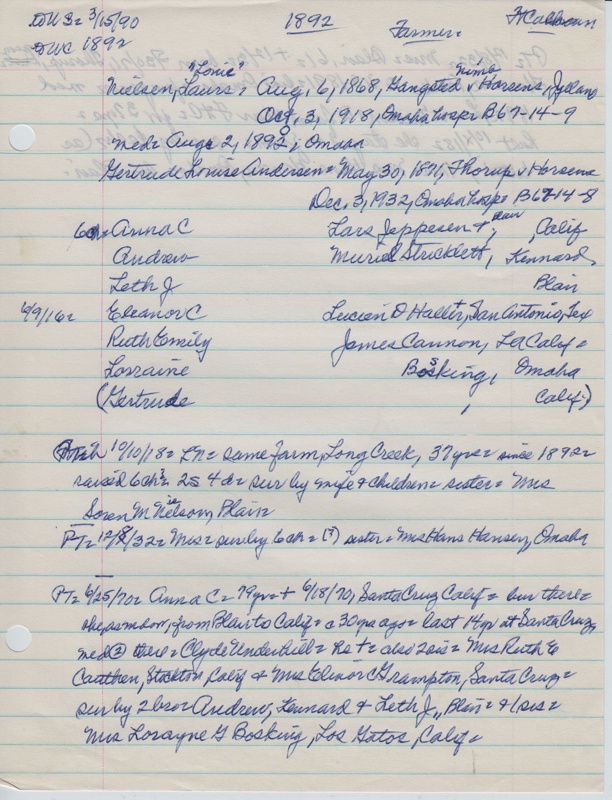 DWB= 3/15/90 1892 Farmer= Ft Calhoun
DWC 1892
"Lonie" Nimb
Nielsen, Laurs= Aug, 6, 1868, Gangsted v Horsens, Jylland
Oct, 3, 1918, Omaha hosp= B67-14-9
med= Aug 2, 1892, Omaha
Gertrude Louise Andersen= May 30, 1871, Thorup v Horsens
Dec, 3, 1932, Omaha hosp= B67-14-8
6ch= Anna C Lars Jeppesen +, Blair, Calif
Andrew Muriel Stricklett, Kennard,
Leth J Blair
6/9/16= Eleanor C Lucien D Hallett, San Antonio, Tex
Ruth Emily James Cannon, LA Calif=
Lorraine Bosking, Omaha
(Gertrude , Calif=)
10/10/18= LN= same farm, Long Creek, 37 yrs= since 1892=
raised 6 ch= 2s 4d= sur by wife + children= sister= Mrs
Soren M Nielson, Blair
PT= 12/8/32= Mrs= sur by 6 ch= (?) sister= Mrs Hans Hansen, Omaha
PT= 6/25/70= Anna C= 79 yr= + 6/18/70, Santa Cruz Calif= bur there=
from Blair to Calif= c 30 yrs ago= last 14 yr at Santa Cruz,
med ② there= Clyde Underhill= also 2 sis= Mrs Ruth E
Cauthen, Stockton, Calif + Mrs Elinor C Grampton, Santa Cruz=
sur by 2 bro= Andrew, Kennard + Leth J,, Blair= + 1 sis=
Mrs Lorayne G Bosking, Los Gatos, Calif=